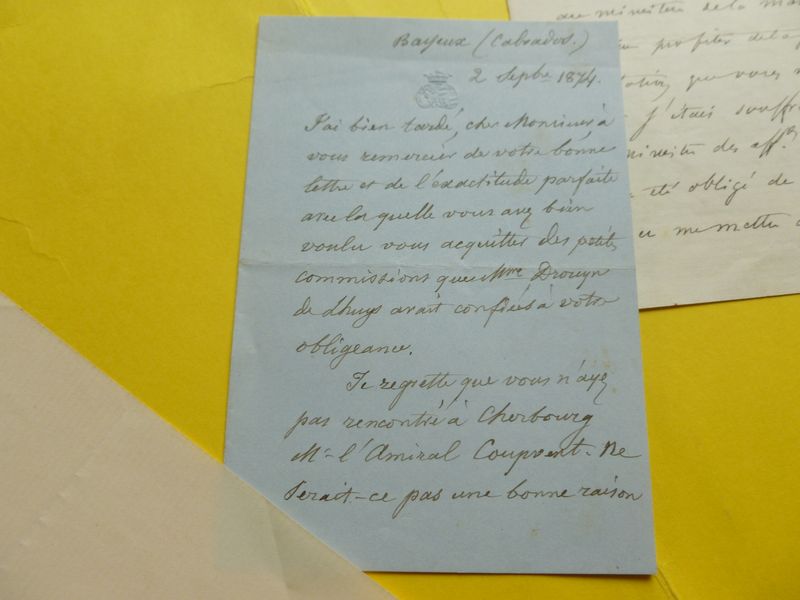 Bayeux (Calvados.)
2 Septbre 1874.
J'ai bien tardé, cher Monsieur à
vous remercier de votre bonne
lettre et de l'éxactitude parfaite
avec laquelle vous avez bien
voulu vous acquitter des petites
commissions que Mme Drouyn
de Lhuys avait confiées à votre
obligeance.
Je regrette que vous n'ayez
pas rencontré à Cherbourg
Mr l'Amiral Coupvent. Ne
serait-ce pas une bonne raison
au ministre de la
profiter de la
que vous
j'étais
ministre des aff.
été obligé de
me mettre